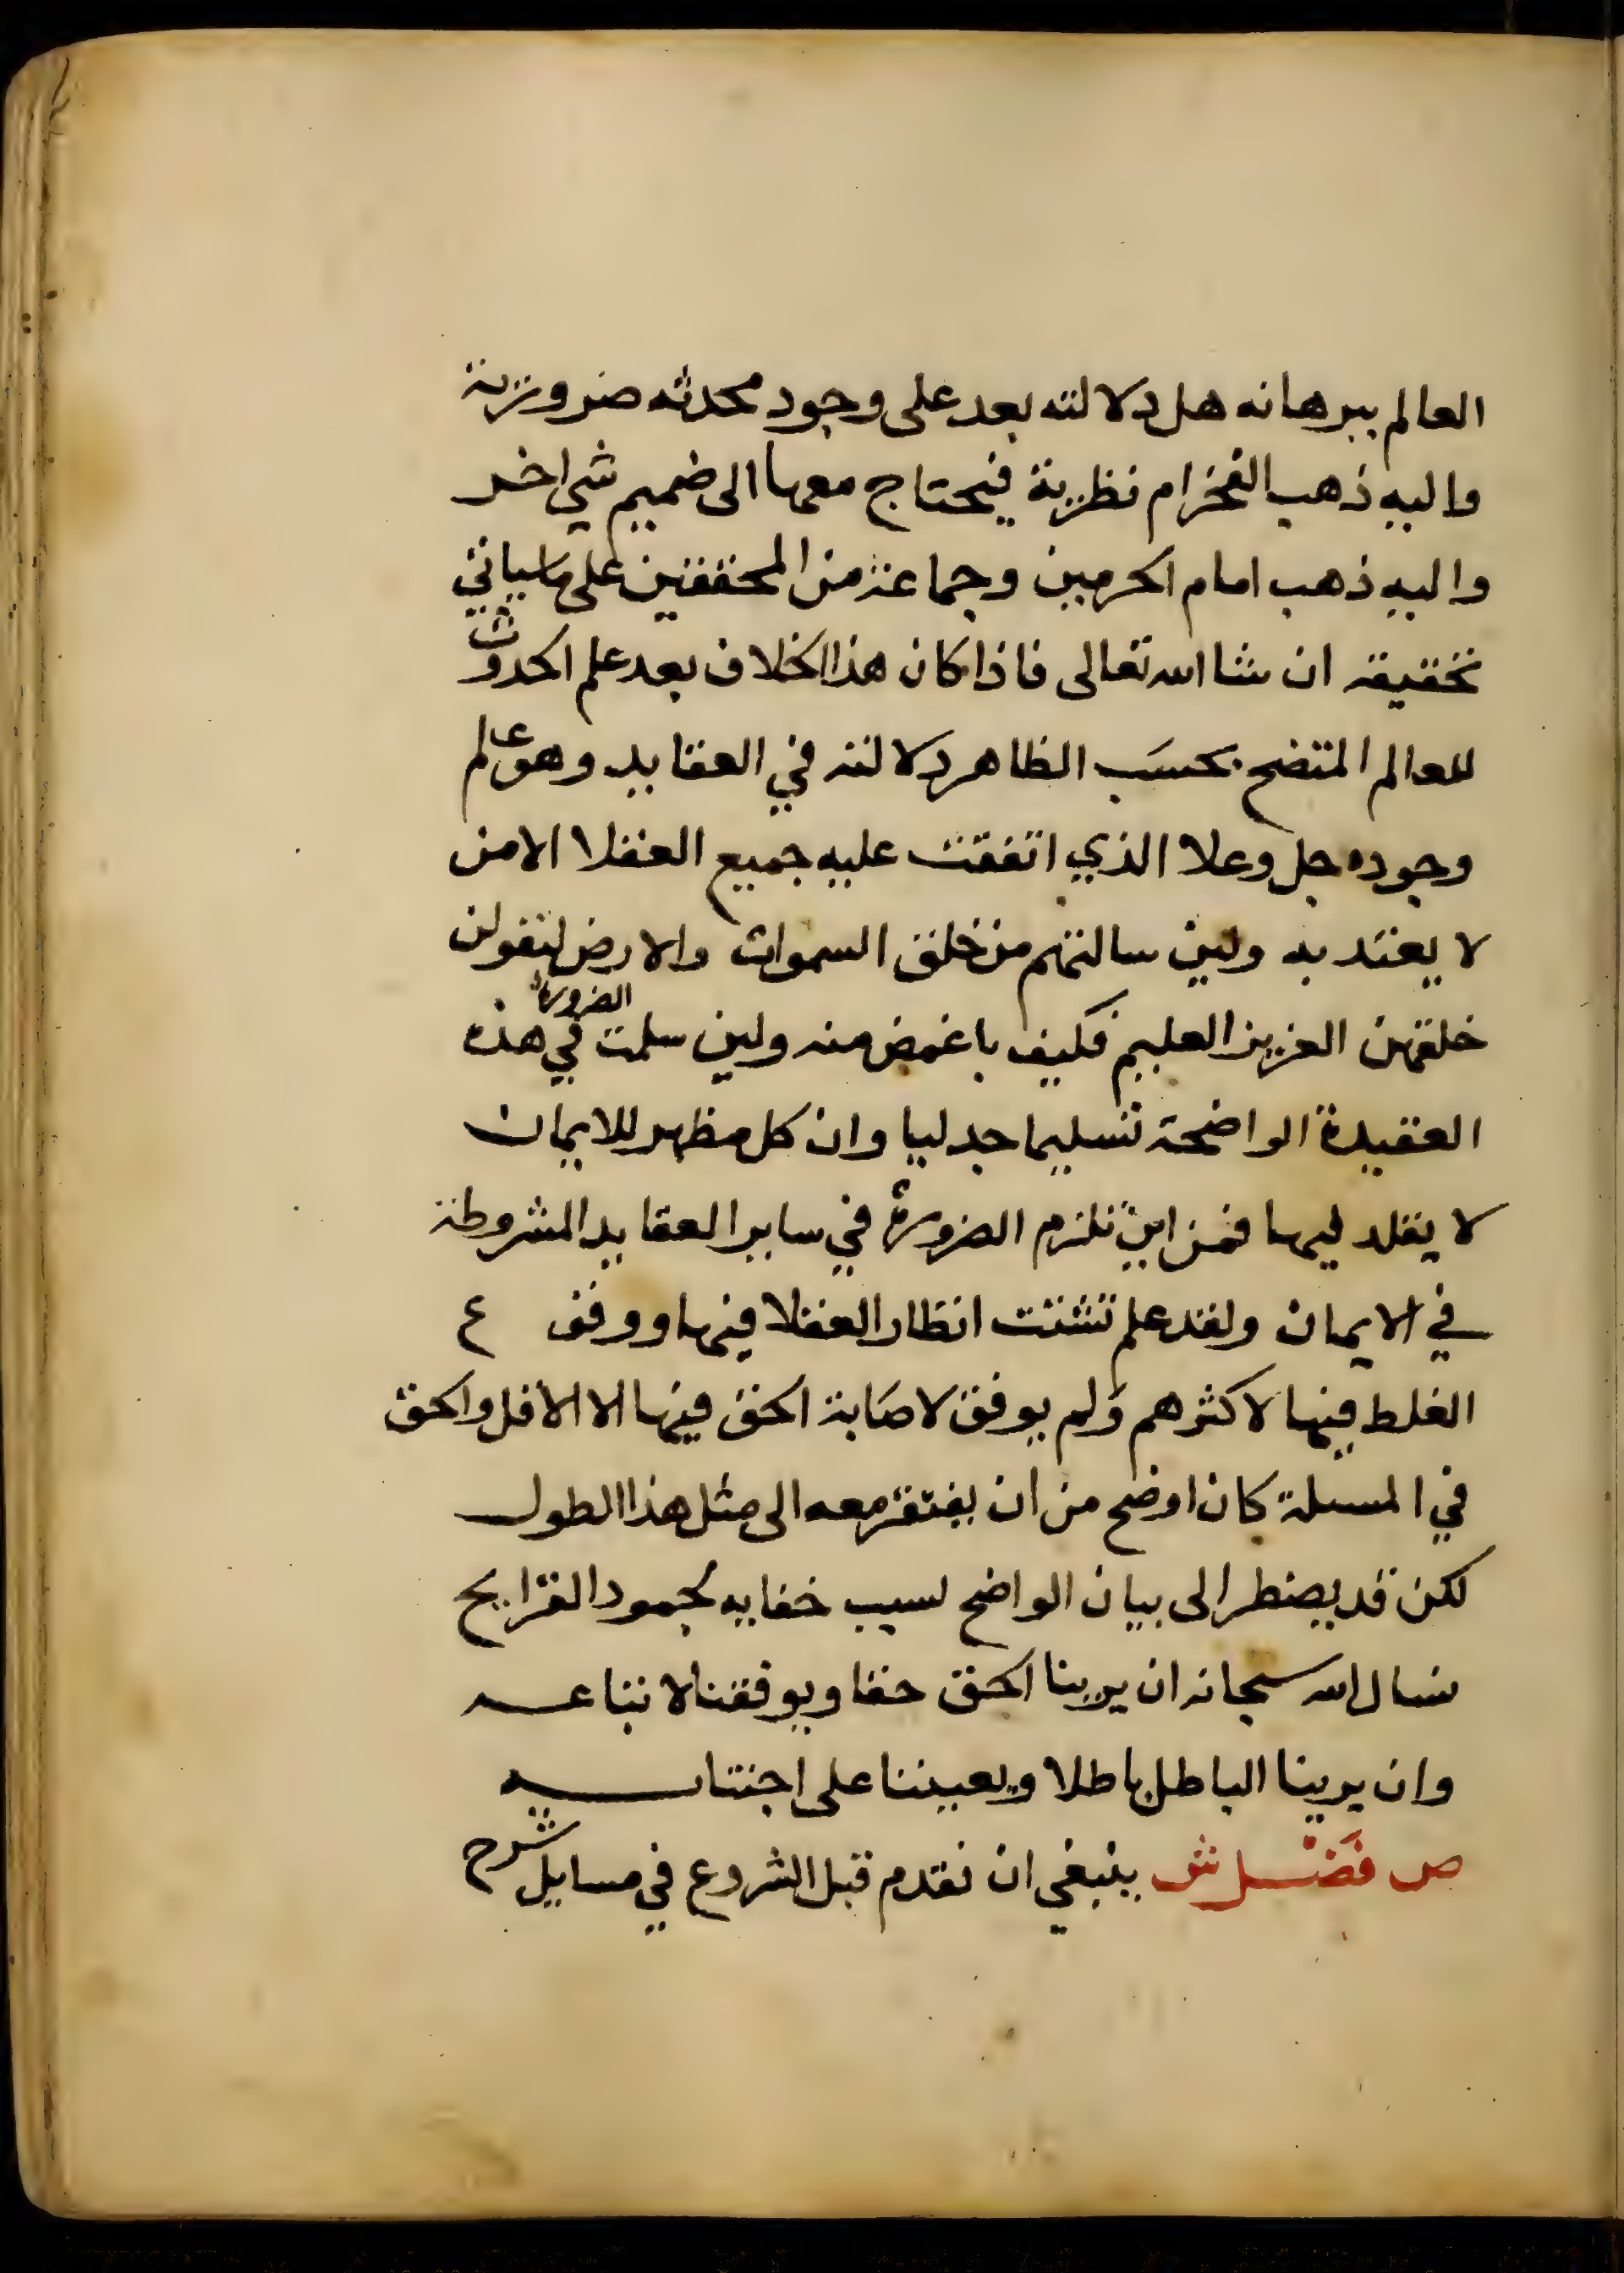 العالم ببرهانه هل دلالته بعد على وجود محدثه ضرورية
واليه ذهب الفخر ام نظرية فيحتاج معها الى ضميم شي اخر
واليه ذهب امام الحرمين وجماعة من المحققين على ماسياتي
تحقيقه ان شا الله تعالى فاذا كان هذا الخلاف بعد علم الحدوث
للعالم المتضح بحسَب الظاهر دلالته في العقايد وهو علم
وجوده جل وعلا الذي اتفقت عليه جميع العقلا الا من
لا يعتد به ولين سالتهم من خلق السموات والارض ليقولن
خلقهن العزيز العليم فكيف باغمض منه ولين سلمت الضرورة في هذه
العقيدة الواضحة تسليما جدليا وان كل مظهر للايمان
لا يقلد فيها فمن اين تلزم الضرورة في ساير العقايد المشروطة
في الايمان ولقد علم تشتت انظار العقلا فيها ووقف ع
الغلط فيها لاكثرهم ولم يوفق لاصَابة الحق فيها الا الاقل والحق
في المسلة كان اوضح من ان يفتقر معه الى مثل هذا الطول
لكن قد يضطر الى بيان الواضح لسبب خفايه لجمود القرايح
نسال الله سبحانه ان يرينا الحق حقا ويوفقنا لاتباعه
وان يرينا الباطل باطلا ويعيننا على اجتنابه
ص فَصْل ش ينبغي ان نقدم قبل الشروع في مسايل شرح